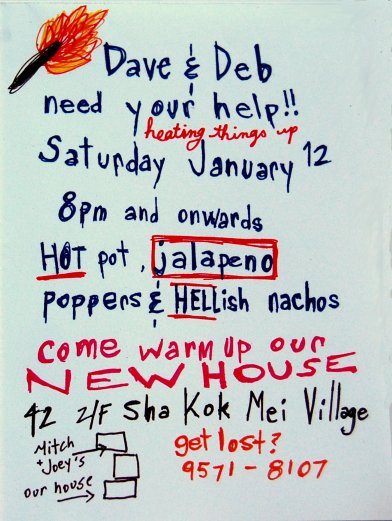 Dave & Deb
need your help!!
heating things up
Saturday January 12
8pm and onwards
HOT pot, jalapeno
poppers & HELLish nachos
come warm up our
NEW HOUSE
42 2/F Sha Kok Mei Village
Mitch
+ Joey's
our house
get lost?
9571-8107